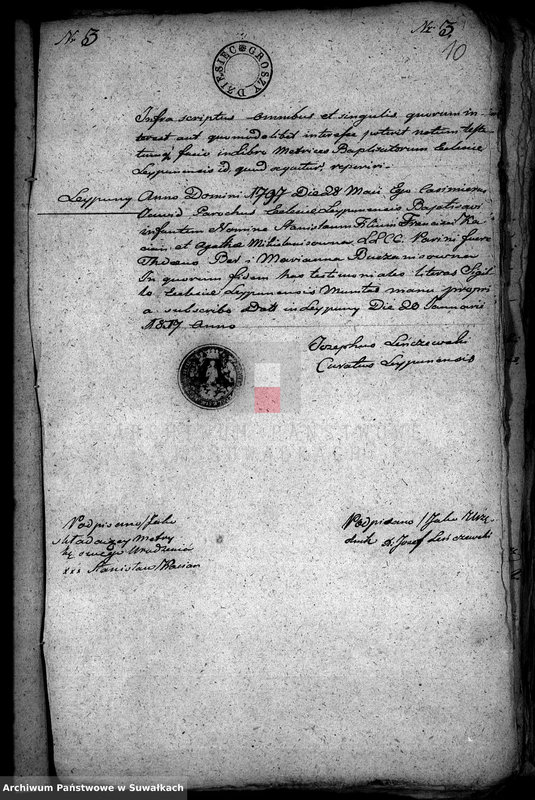 N. 3
N. 3
10
DZIESIĘC GROSZY
Infra scriptus Omnibus et singulis quorum in-
terest aut quomodolibet interesse poterit notum testa-
tumq facio in Libro Metrices Baptisatorum Ecclesiae
Leypunensis id quod sequitur reperiri.
Leypuny Anno Domini 1797 Die 28 Maii Ego Casimirus
Parochus Ecclesiae Leypunensis Baptisavi
infantem Nomine Stanislaum Filium Francisci Ka-
et Agatha LLCC. Patrini fuere
Marianna
In quorum fidem has testimoniales literas Sigil-
lo Ecclesiae Leypunensis Munitas manu propri
a subscribo Dat in Leypuny Die 20 Januarii
1817 Anno
Josephus Leszczewski
Curatus Leypunensis
Podpisano / Jako
składaiący Metry
kę swego Urodzenia
xxx Stanisław Kacian
Podpisano / Jako Urzę-
dnik X. Josef Leszczewski
Archiwum Państwowe w Suwałkach